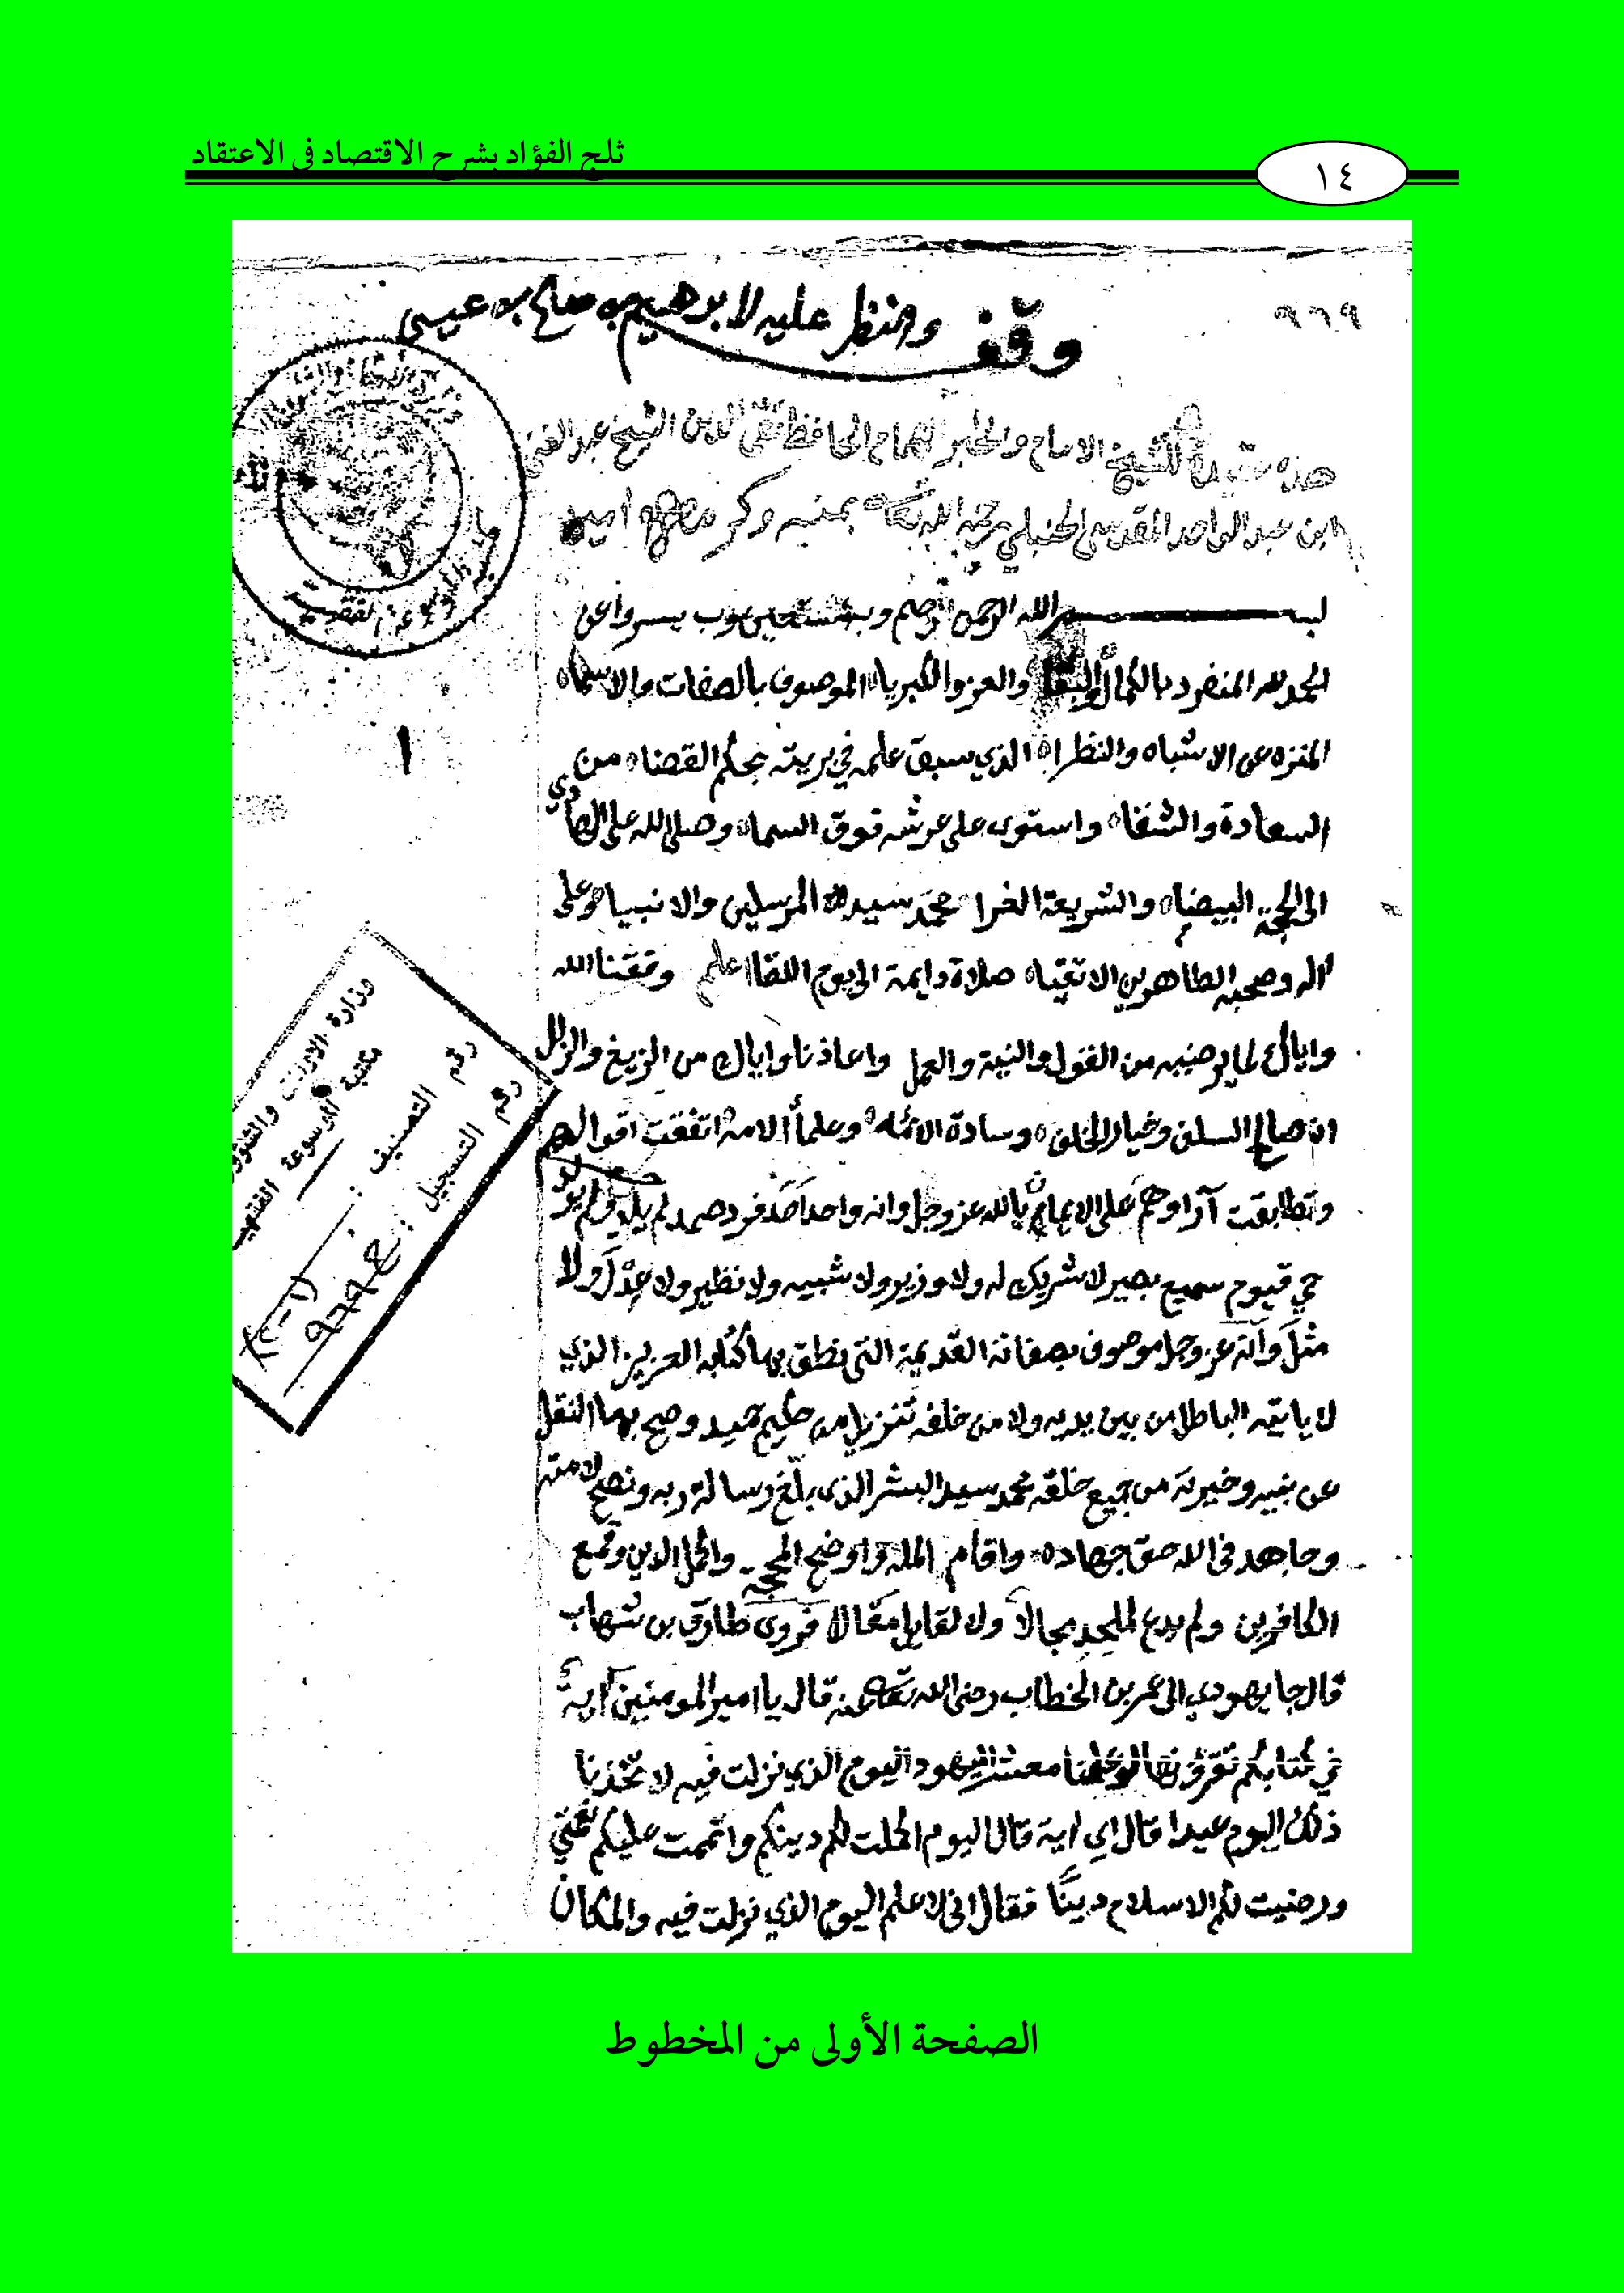 ثلج الفؤاد بشرح الاقتصاد في الاعتقاد
١٤
٩٦٩
وقف والنظر عليه لابرهيم بن صالح بن عيسى
هذه للشيخ الامام والحبر الهمام الحافظ تقي الدين الشيخ عبد الغني
ابن عبد الواحد المقدسي الحنبلي رحمه الله تعالى بمنه وكرمه امين
بسم الله الرحمن الرحيم وبه نستعين رب يسر واعن
الحمد لله المنفرد بالكمال والبقا والعز والكبريا الموصوف بالصفات والاسما
المنزه عن الاشباه والنظرا الذي سبق علمه في بريته بحكم القضا من
السعادة والشقا واستوى على عرشه فوق السما وصلى الله على الهادي
الى المحجة البيضا والشريعة الغرا محمد سيد المرسلين والانبيا وعلى
اله وصحبه الطاهرين الاتقيا صلاة دايمة الى يوم اللقا اعلم وفقنا الله
واياك لما يرضيه من القول والنية والعمل واعاذنا واياك من الزيغ والزلل
ان صالح السلف وخيار الخلف وسادة الائمة وعلمأ الامة اتفقت اقوالهم
وتطابقت آراوهم على الايمان بالله عز وجل وانه واحد احد فرد صمد لم يلد ولم يولد
حي قيوم سميع بصير لا شريك له ولا وزير ولا شبيه ولا نظير ولا عدل ولا
مثل وانه عز وجل موصوف بصفاته القديمة التي نطق بها كتابه العزيز الذي
لا ياتيه الباطل من بين يديه ولا من خلفه تنزيل من حكيم حميد وصح بها النقل
عن نبيه وخيرته من جميع خلقه محمد سيد البشر الذي بلّغ رسالة ربه ونصح لامته
وجاهد في الله حق جهاده واقام الملة واوضح المحجة واكمل الدين وقمع
الكافرين ولم يدع لملحد مجالا ولا لقايل مقالا فروى طارق بن شهاب
قال جا يهودي الى عمر بن الخطاب رضي الله تعالى عنه قال يا امير المومنين اية
في كتابكم تقرؤنها لو علينا معشر اليهود اليوم الذي نزلت فيه لاتخذنا
ذلك اليوم عيدا قال اي اية قال اليوم اكملت لكم دينكم واتممت عليكم نعمتي
ورضيت لكم الاسلام دينًا فقال اني لاعلم اليوم الذي نزلت فيه والمكان
١
وزارة الاوقاف والشؤون
مكتبة الموسوعة الفقهية
رقم التصنيف :
رقم التسجيل :
الصفحة الأولى من المخطوط